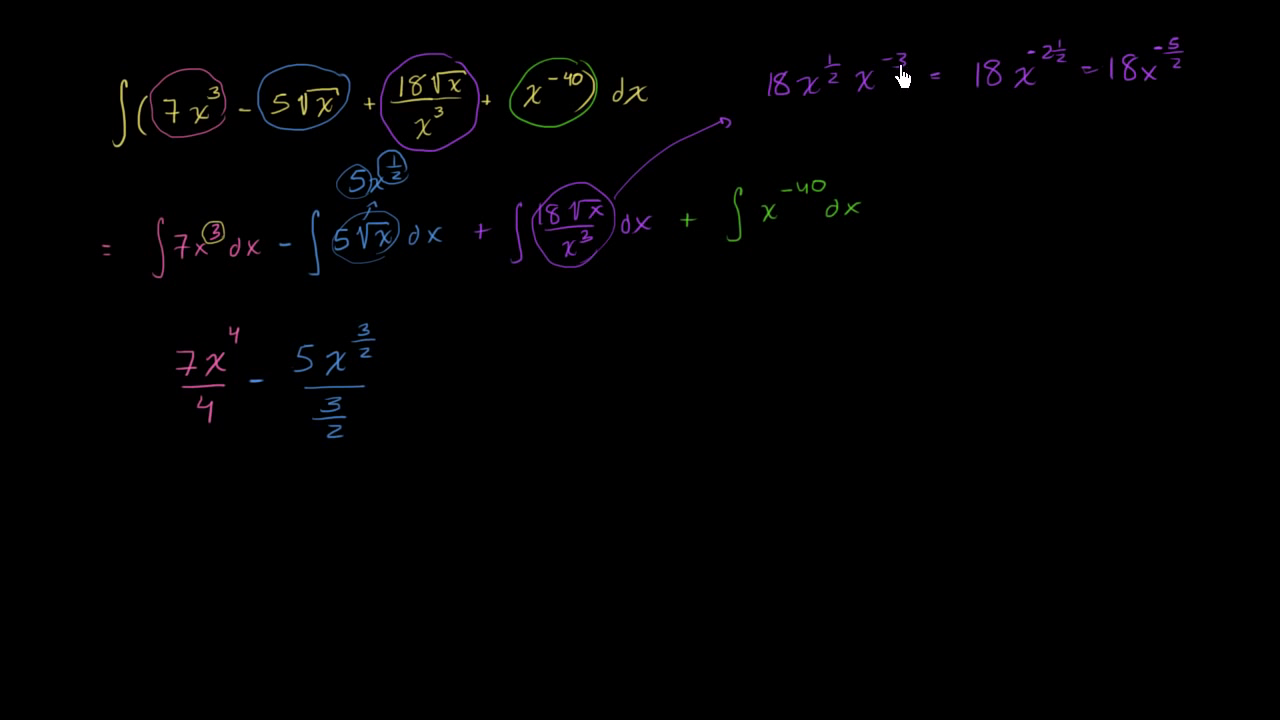 ∫(7x³ - 5√x + 18√x/x³ + x⁻⁴⁰) dx
18x^(1/2) x⁻³ = 18x^(-2 1/2) = 18x^(-5/2)
5x^(1/2)
= ∫7x³dx - ∫5√x dx + ∫18√x/x³ dx + ∫x⁻⁴⁰dx
7x⁴/4 - 5x^(3/2)/(3/2)